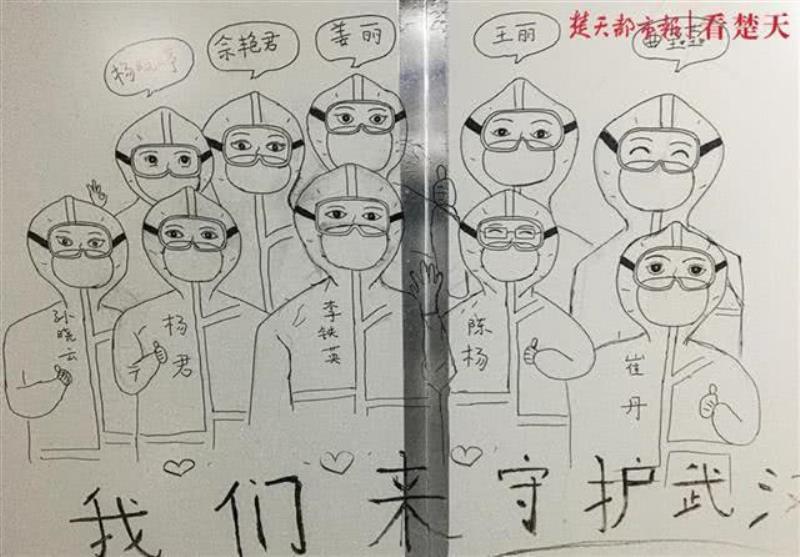 楚天都市报 看楚天
佘艳君
姜丽
王丽
孙晓云
杨君
李铁英
陈杨
崔丹
我们来守护武